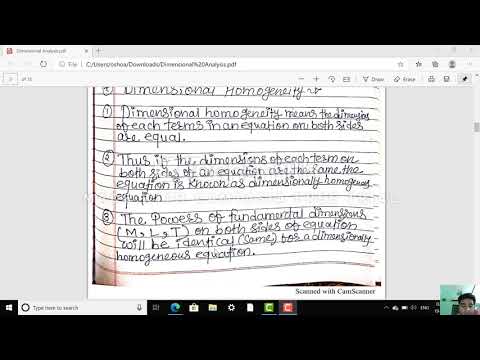 Dimensional Analysis.pdf
C:/Users/oshoa/Downloads/Dimensional%20Analysis.pdf
of 16
Dimensional Homogeneity
① Dimensional homogeneity means the dimensions
of each terms in an equation on both sides
are equal.
② Thus if the dimensions of each term on
both sides of an equation are the same the
equation is known as dimensionally homogenous
equation
③ The Powers of fundamental dimensions
(M, L, T) on both sides of equation
will be identical (same) for a dimensionally
homogeneous equation.
Scanned with CamScanner
Type here to search
ENG